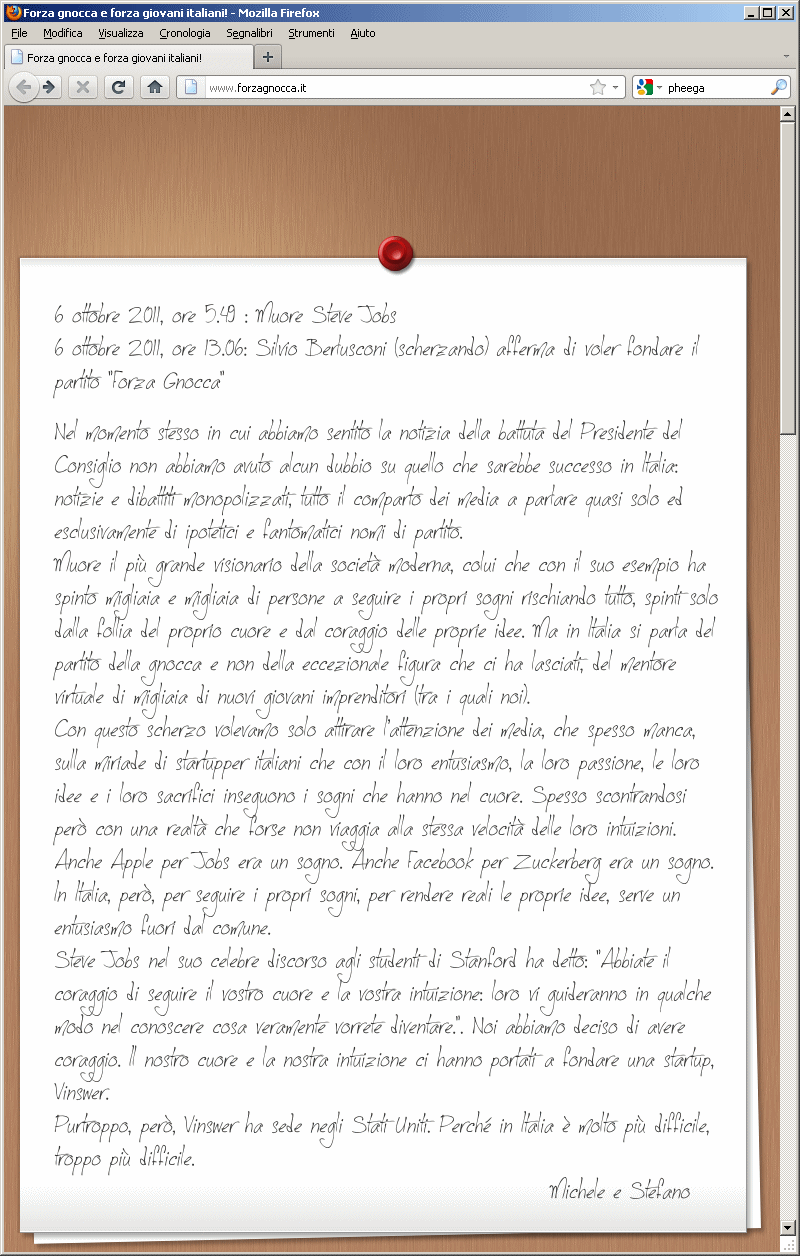 Forza gnocca e forza giovani italiani! - Mozilla Firefox
File Modifica Visualizza Cronologia Segnalibri Strumenti Aiuto
Forza gnocca e forza giovani italiani!
www.forzagnocca.it pheega
6 ottobre 2011, ore 5.49 : Muore Steve Jobs
6 ottobre 2011, ore 13.06: Silvio Berlusconi (scherzando) afferma di voler fondare il
partito "Forza Gnocca"
Nel momento stesso in cui abbiamo sentito la notizia della battuta del Presidente del
Consiglio non abbiamo avuto alcun dubbio su quello che sarebbe successo in Italia:
notizie e dibattiti monopolizzati, tutto il comparto dei media a parlare quasi solo ed
esclusivamente di ipotetici e fantomatici nomi di partito.
Muore il più grande visionario della società moderna, colui che con il suo esempio ha
spinto migliaia e migliaia di persone a seguire i propri sogni rischiando tutto, spinti solo
dalla follia del proprio cuore e dal coraggio delle proprie idee. Ma in Italia si parla del
partito della gnocca e non della eccezionale figura che ci ha lasciati, del mentore
virtuale di migliaia di nuovi giovani imprenditori (tra i quali noi).
Con questo scherzo volevamo solo attirare l'attenzione dei media, che spesso manca,
sulla miriade di startupper italiani che con il loro entusiasmo, la loro passione, le loro
idee e i loro sacrifici inseguono i sogni che hanno nel cuore. Spesso scontrandosi
però con una realtà che forse non viaggia alla stessa velocità delle loro intuizioni.
Anche Apple per Jobs era un sogno. Anche Facebook per Zuckerberg era un sogno.
In Italia, però, per seguire i propri sogni, per rendere reali le proprie idee, serve un
entusiasmo fuori dal comune.
Steve Jobs nel suo celebre discorso agli studenti di Stanford ha detto: "Abbiate il
coraggio di seguire il vostro cuore e la vostra intuizione: loro vi guideranno in qualche
modo nel conoscere cosa veramente vorrete diventare.". Noi abbiamo deciso di avere
coraggio. Il nostro cuore e la nostra intuizione ci hanno portati a fondare una startup,
Vinswer.
Purtroppo, però, Vinswer ha sede negli Stati Uniti. Perché in Italia è molto più difficile,
troppo più difficile.
Michele e Stefano